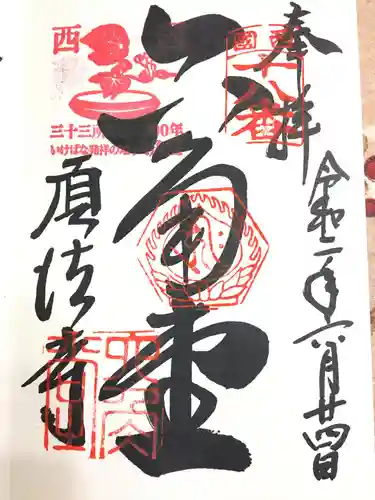 奉拝
西国
十八番
令和二年六月廿四日
六角堂
西
三十三所
00年
いけばな発祥の
頂法寺